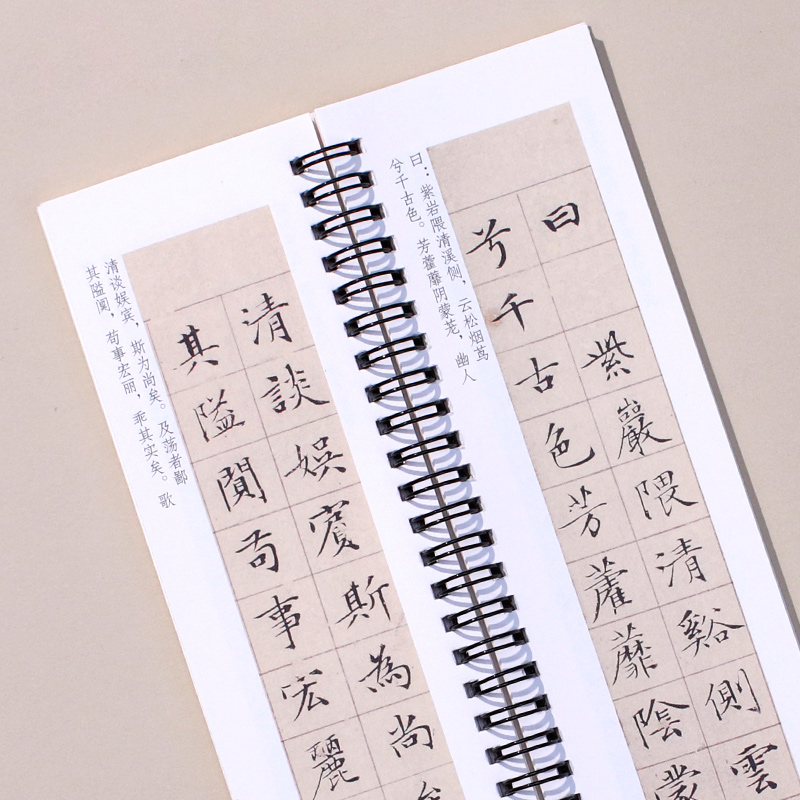 清談娱賓斯為尚矣
其隘闃苟事宏麗
清谈娱宾，斯为尚矣。及荡者鄙
其隘阒，苟事宏丽，乖其实矣。歌
曰紫巖隈清谿側雲
兮千古色芳藿蘼陰蒙
曰：紫岩隈清溪侧，云松烟茑
兮千古色。芳藿蘼阴蒙茏，幽人